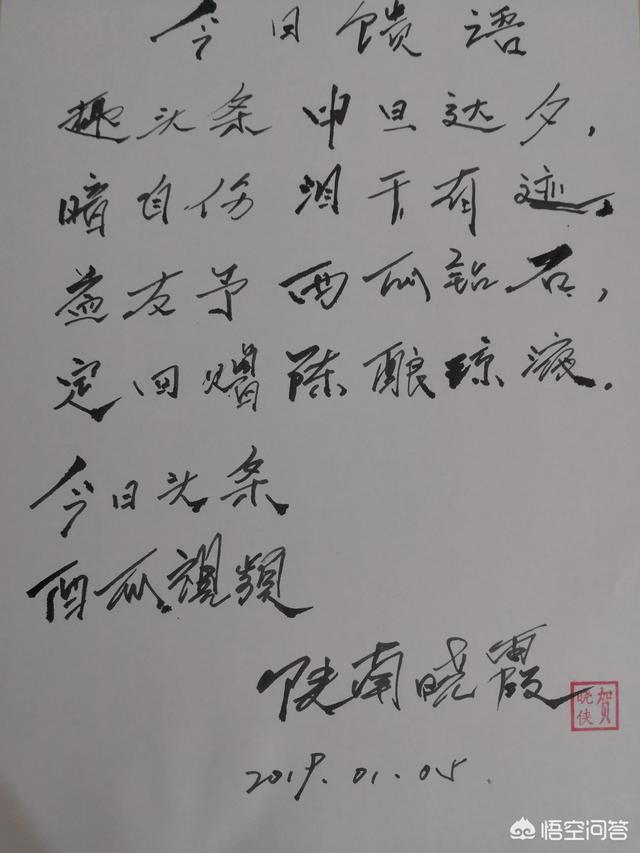 今日馈语
趣头条 申旦达夕，
暗自伤 泪干有迹。
益友予 西瓜钻石，
定回赠 陈酿琼液。
今日头条
西瓜視頻
陕南晓霞
贺晓侠
2019.01.05.
悟空问答